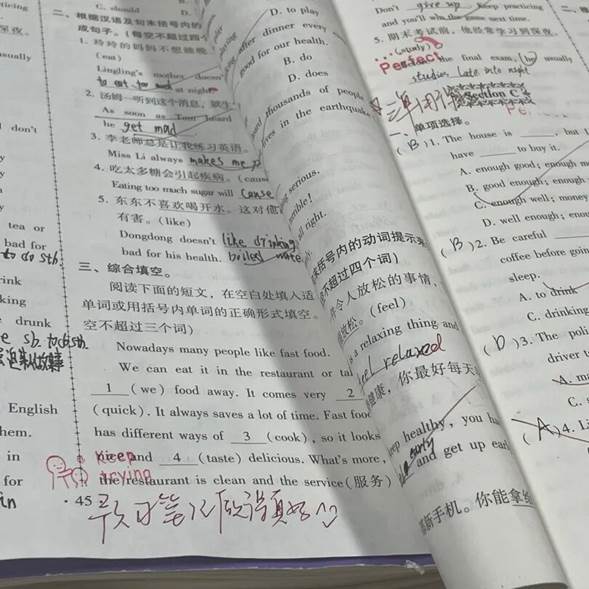 C. should
D.
二、根据汉语及句末括号内的
成句子。(每空不超过四个
1. 玲玲的妈妈不想她晚
(eat)
Lingling's mother doesn't
to eat at night
2. 汤姆一听到这个消息，就生
As soon as Tom heard
he get mad
3. 李老师总是让我练习英语。
Miss Li always makes me
4. 吃太多糖会引起疾病。(cause
Eating too much sugar will cause
5. 东东不喜欢喝开水。这对他
有害。(like)
Dongdong doesn't like drinking
bad for his health. boiled water
三、综合填空。
阅读下面的短文，在空白处填入适
单词或用括号内单词的正确形式填空。
空不超过三个词)
Nowadays many people like fast food.
We can eat it in the restaurant or ta
1 (we) food away. It comes very 2
(quick). It always saves a lot of time. Fast foo
has different ways of 3 (cook), so it looks
nice and 4 (taste) delicious. What's more,
the restaurant is clean and the service(服务)
Keep
trying
· 45
don't
tea or
bad for
to do sth.
ink
king
drunk
English
hem.
in
for
in
D. to play
after dinner every
good for our health.
B. do
D. does
thousands of people
lives in the earthquake
serious.
all right.
括号内的动词提示
不超过四个词)
令人放松的事情,
放松。(feel)
a relaxing thing and
feel relaxed
健康，你最好每天
keep healthy, you h
early and get up ear
新手机。你能拿
Don't give up keep practicing
and you'll win the game next time.
5. 期末考试前，他经常学习到深夜。
(usually)
Perfect
the final exam, he usually
studies late into night
Section C
一、单项选择。
(B)1. The house is ____, but I
have ____ to buy it.
A. enough good; enough m
B. good enough; enough
C. enough well; money
D. well enough; enou
(B)2. Be careful ____
coffee before goin
sleep.
A. to drink
C. drinking
(D)3. The poli
driver t
A. m
C.
(A)4. Li